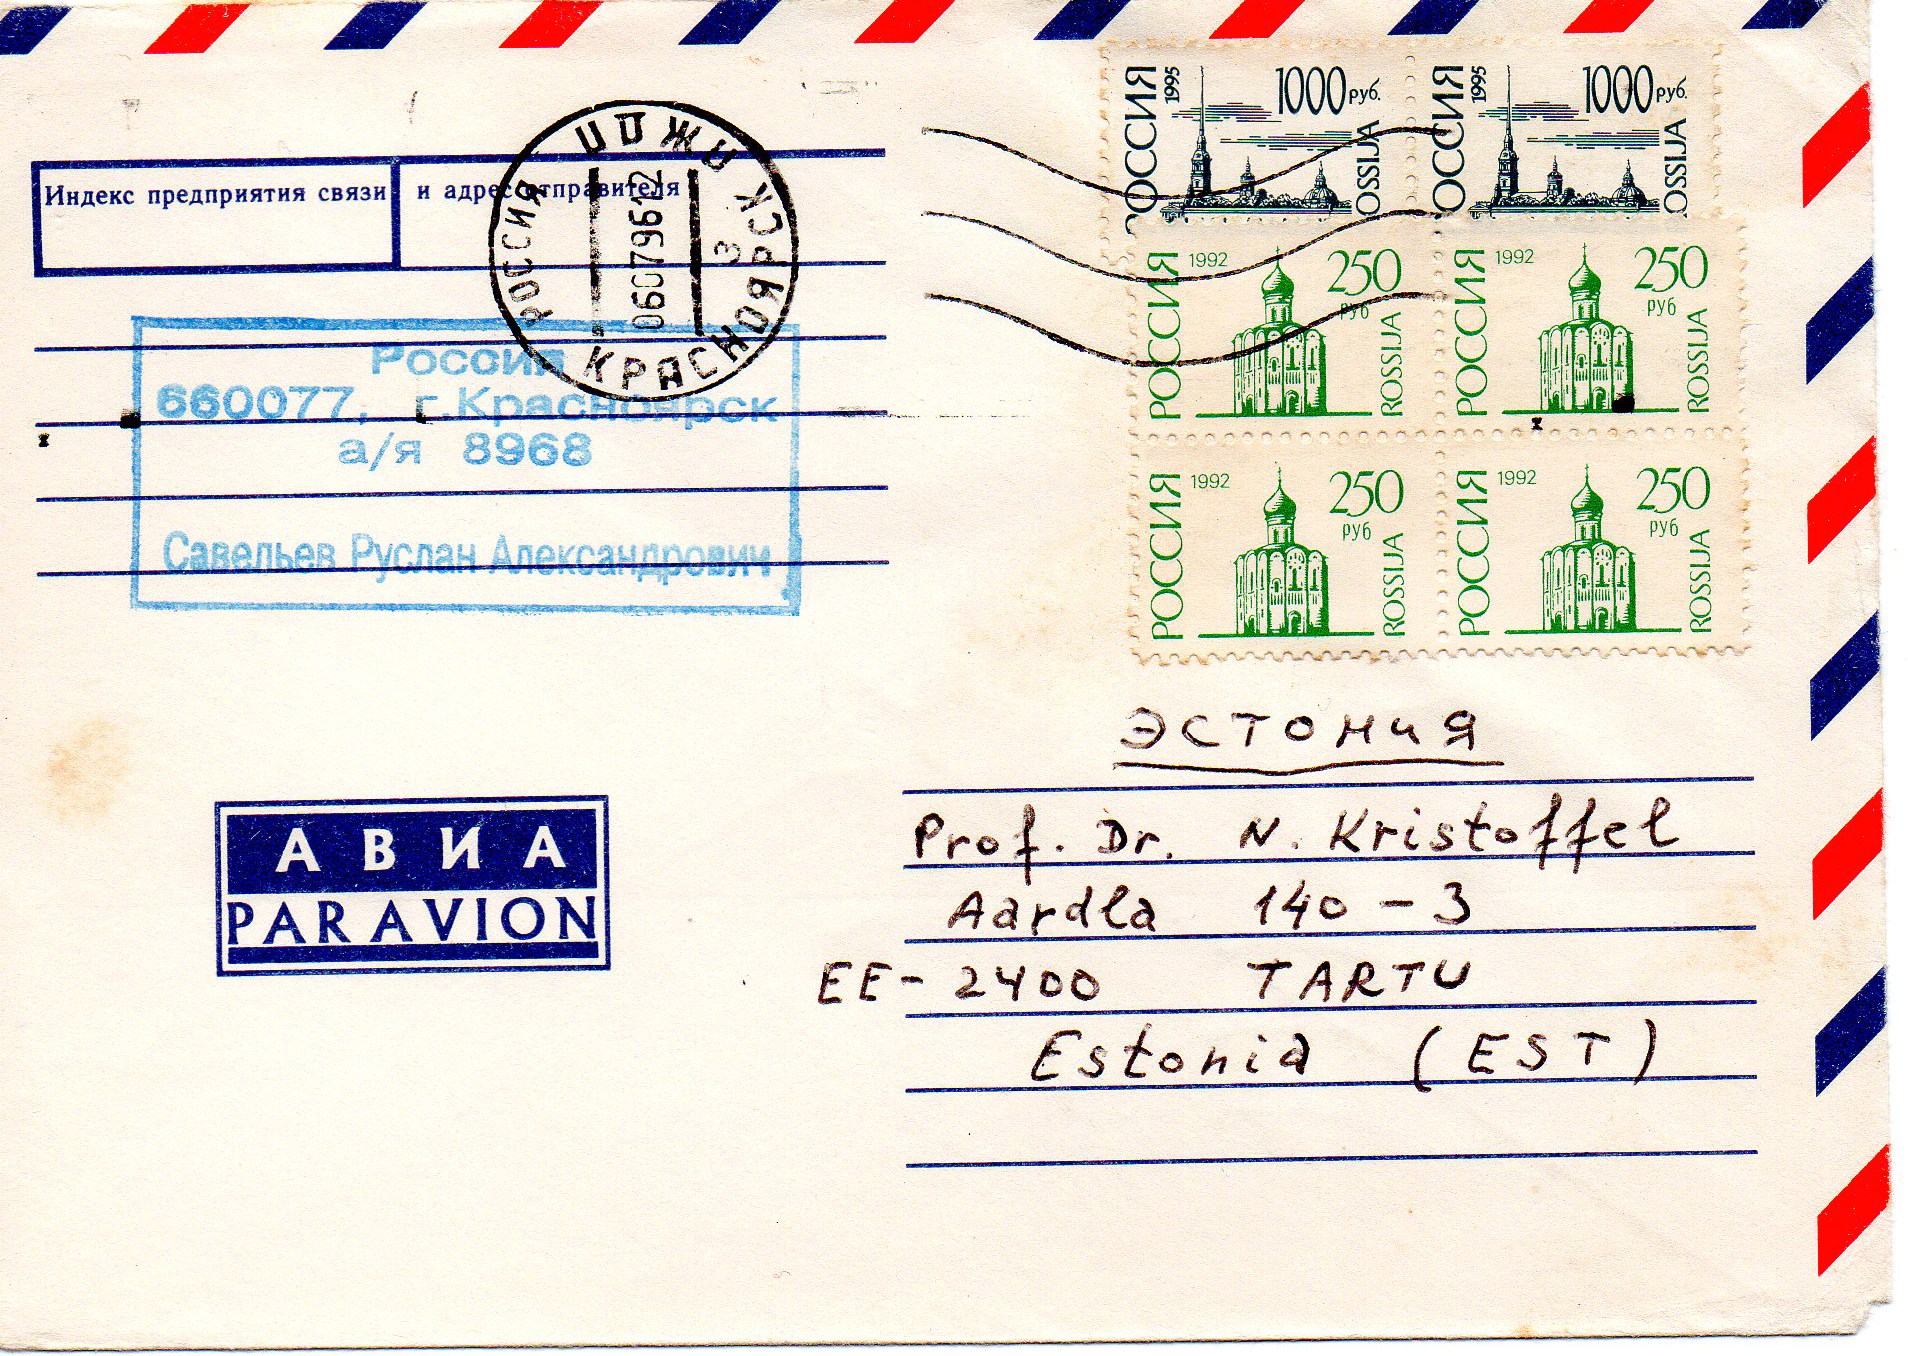 Индекс предприятия связи и адрес отправителя
РОССИЯ ПОЖЖ КРАСНОЯРСК
060796 12
3
Россия
660077, г.Красноярск
а/я 8968
Савельев Руслан Александрович
РОССИЯ 1995 1000 руб. ROSSIJA
РОССИЯ 1995 1000 руб. ROSSIJA
РОССИЯ 1992 250 руб ROSSIJA
РОССИЯ 1992 250 руб ROSSIJA
РОССИЯ 1992 250 руб ROSSIJA
РОССИЯ 1992 250 руб ROSSIJA
ЭСТОНИЯ
Prof. Dr. N. Kristoffel
Aardla 140 - 3
EE - 2400 TARTU
Estonia (EST)
АВИА
PAR AVION